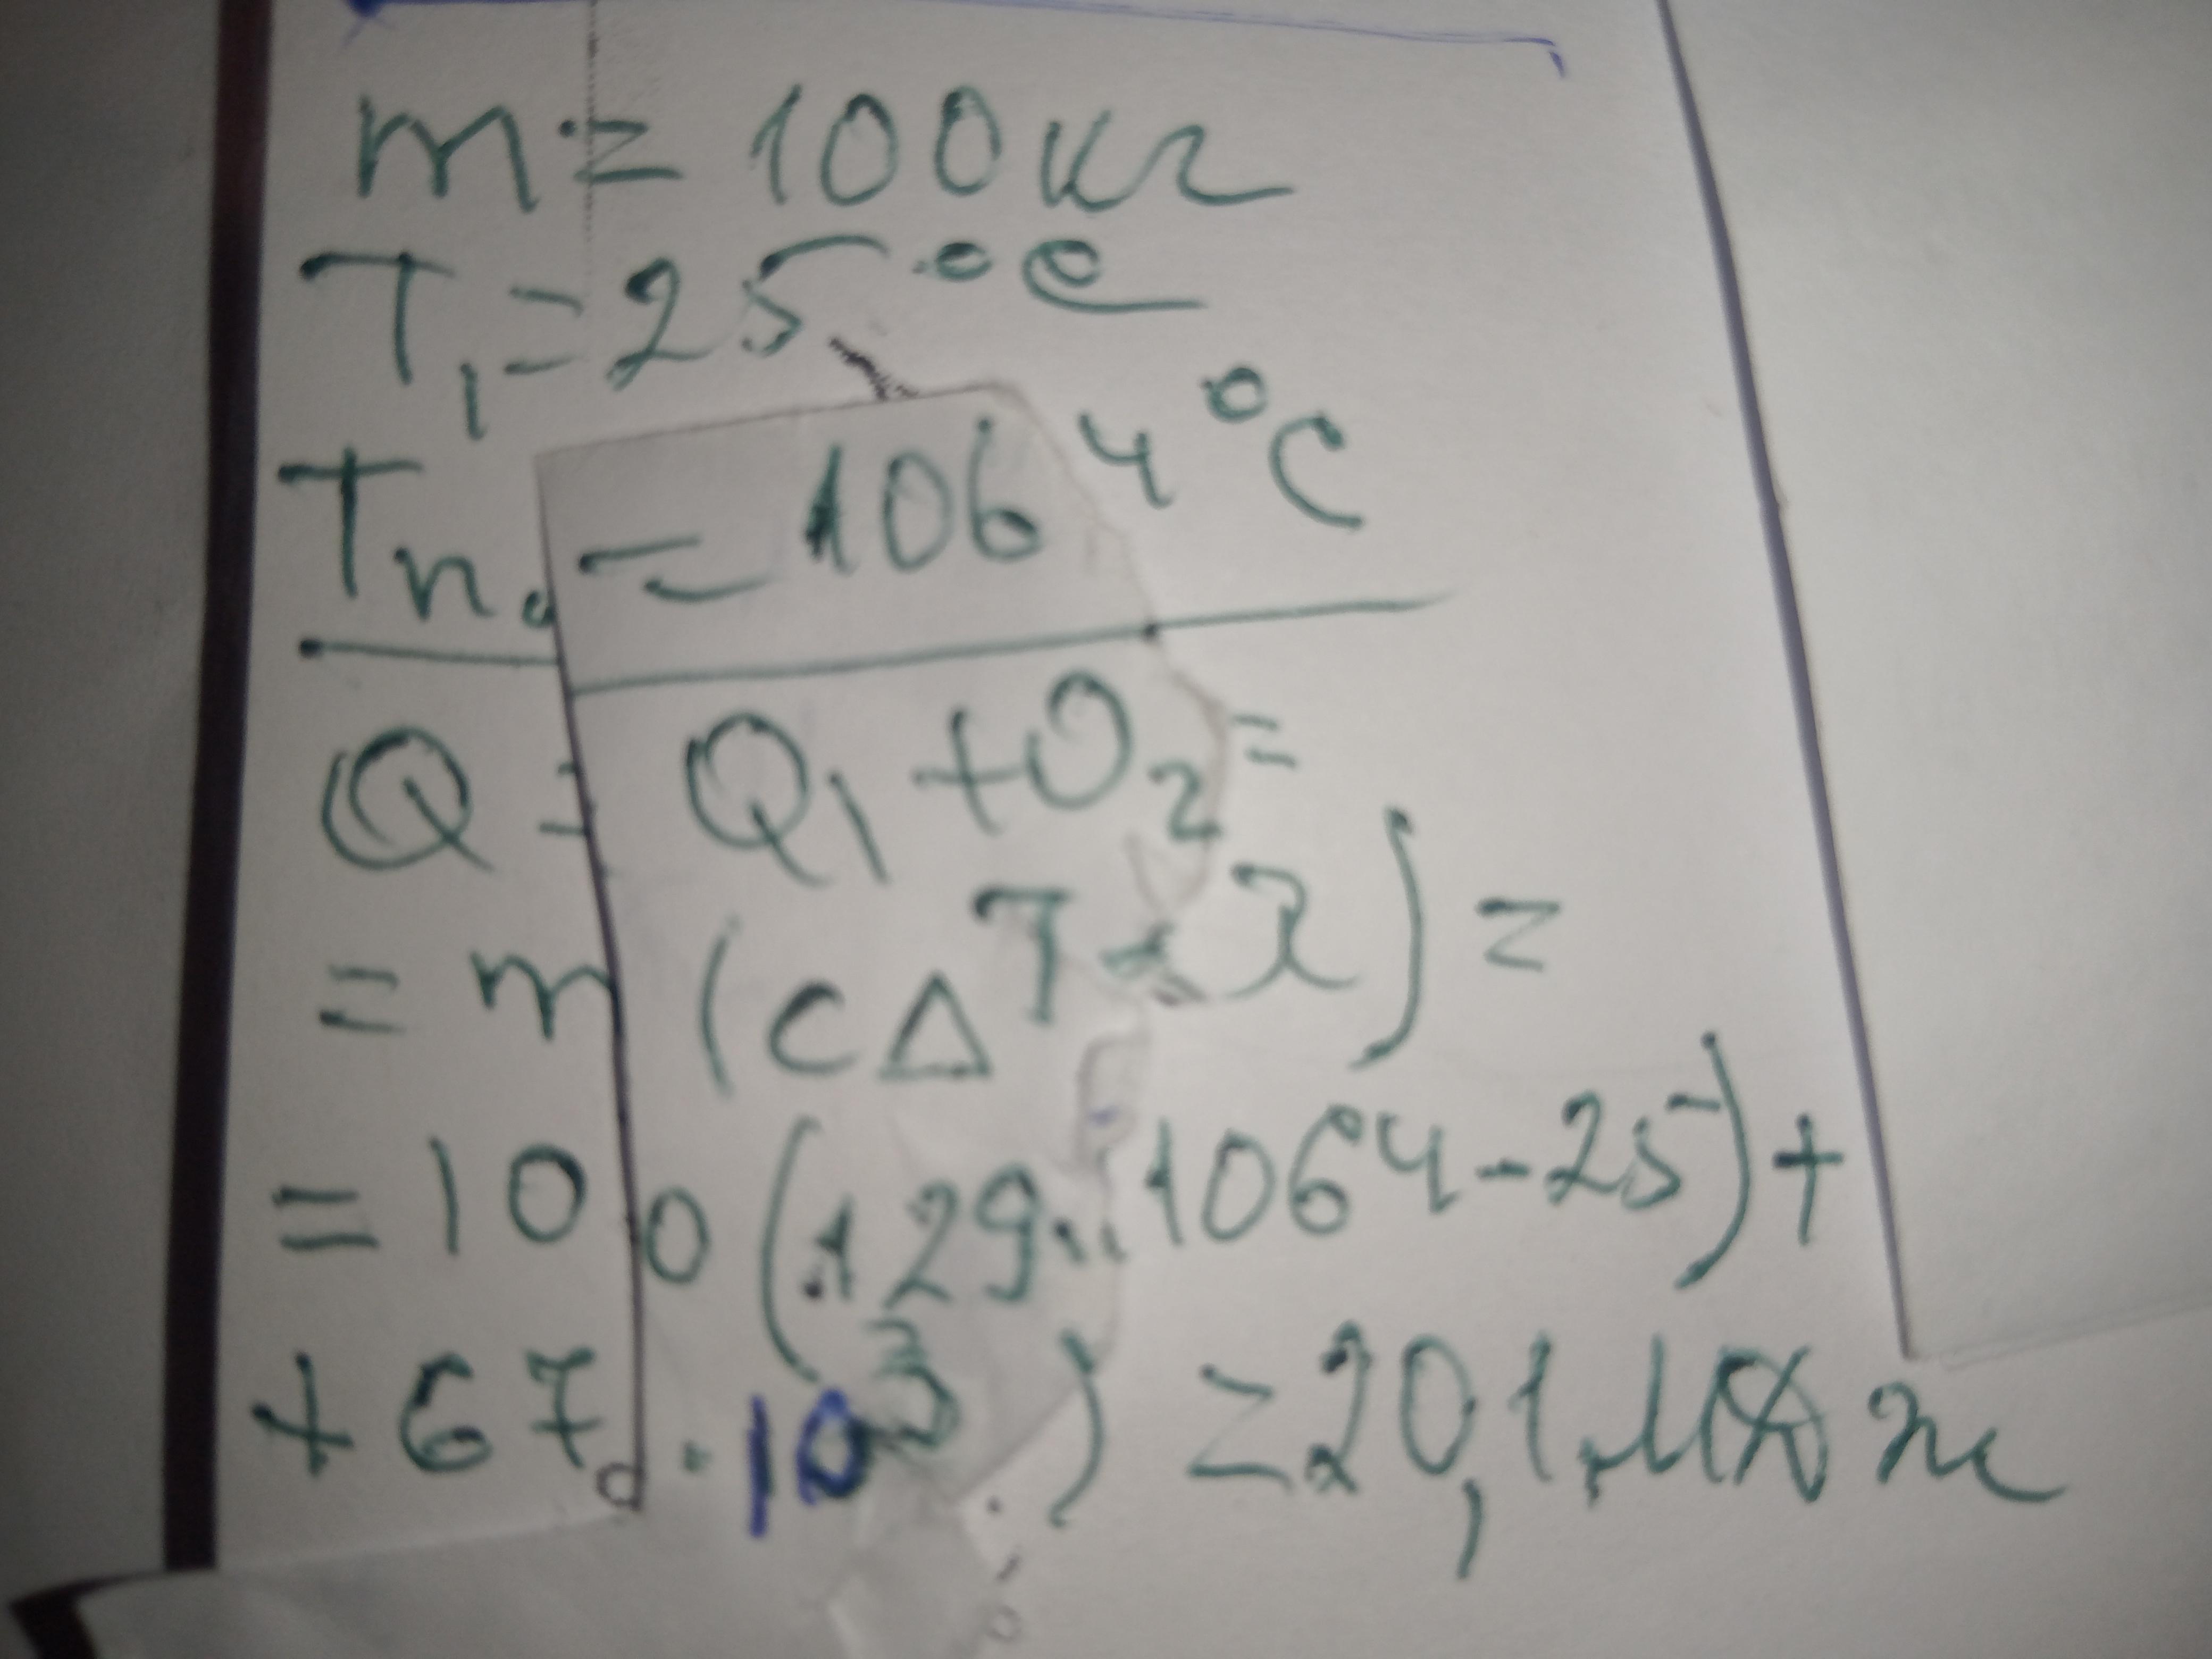 m = 100 кг
T₁ = 25 °C
Tп. = 1064 °C
Q = Q₁ + Q₂ =
= m (cΔT + λ) =
= 100 (129 · 1064 - 25) +
+ 67 · 10³) = 20,1 МДж